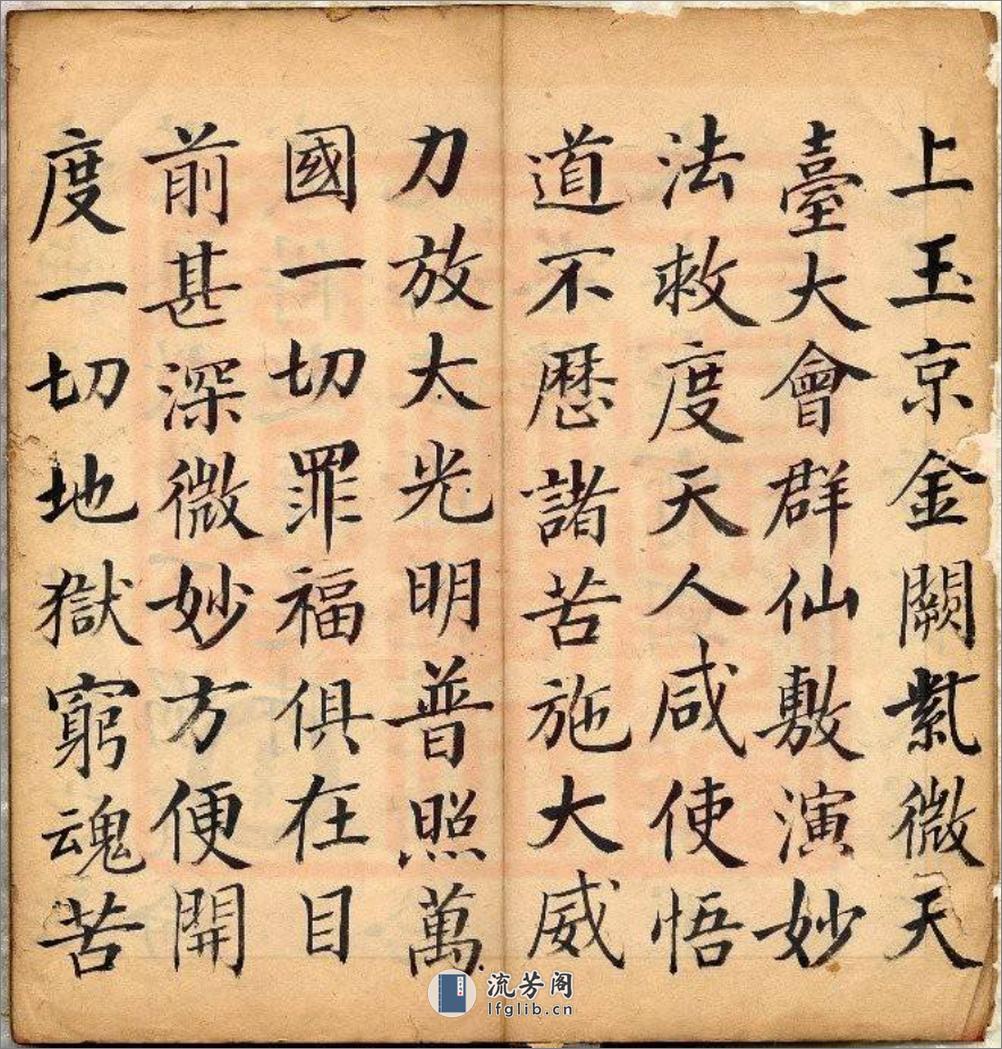 上玉京金闕紫微天
臺大會群仙敷演妙
法救度天人咸使悟
道不歷諸苦施大威
力放大光明普照萬
國一切罪福俱在目
前甚深微妙方便開
度一切地獄窮魂苦
流芳阁
lfglib.cn